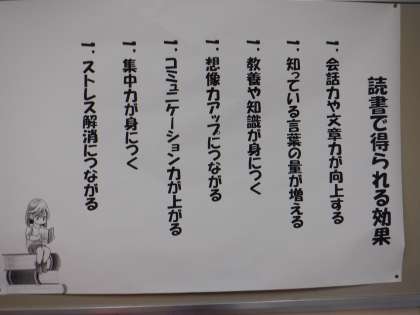 読書で得られる効果
一．会話力や文章力が向上する
一．知っている言葉の量が増える
一．教養や知識が身につく
一．想像力アップにつながる
一．コミュニケーション力が上がる
一．集中力が身につく
一．ストレス解消につながる